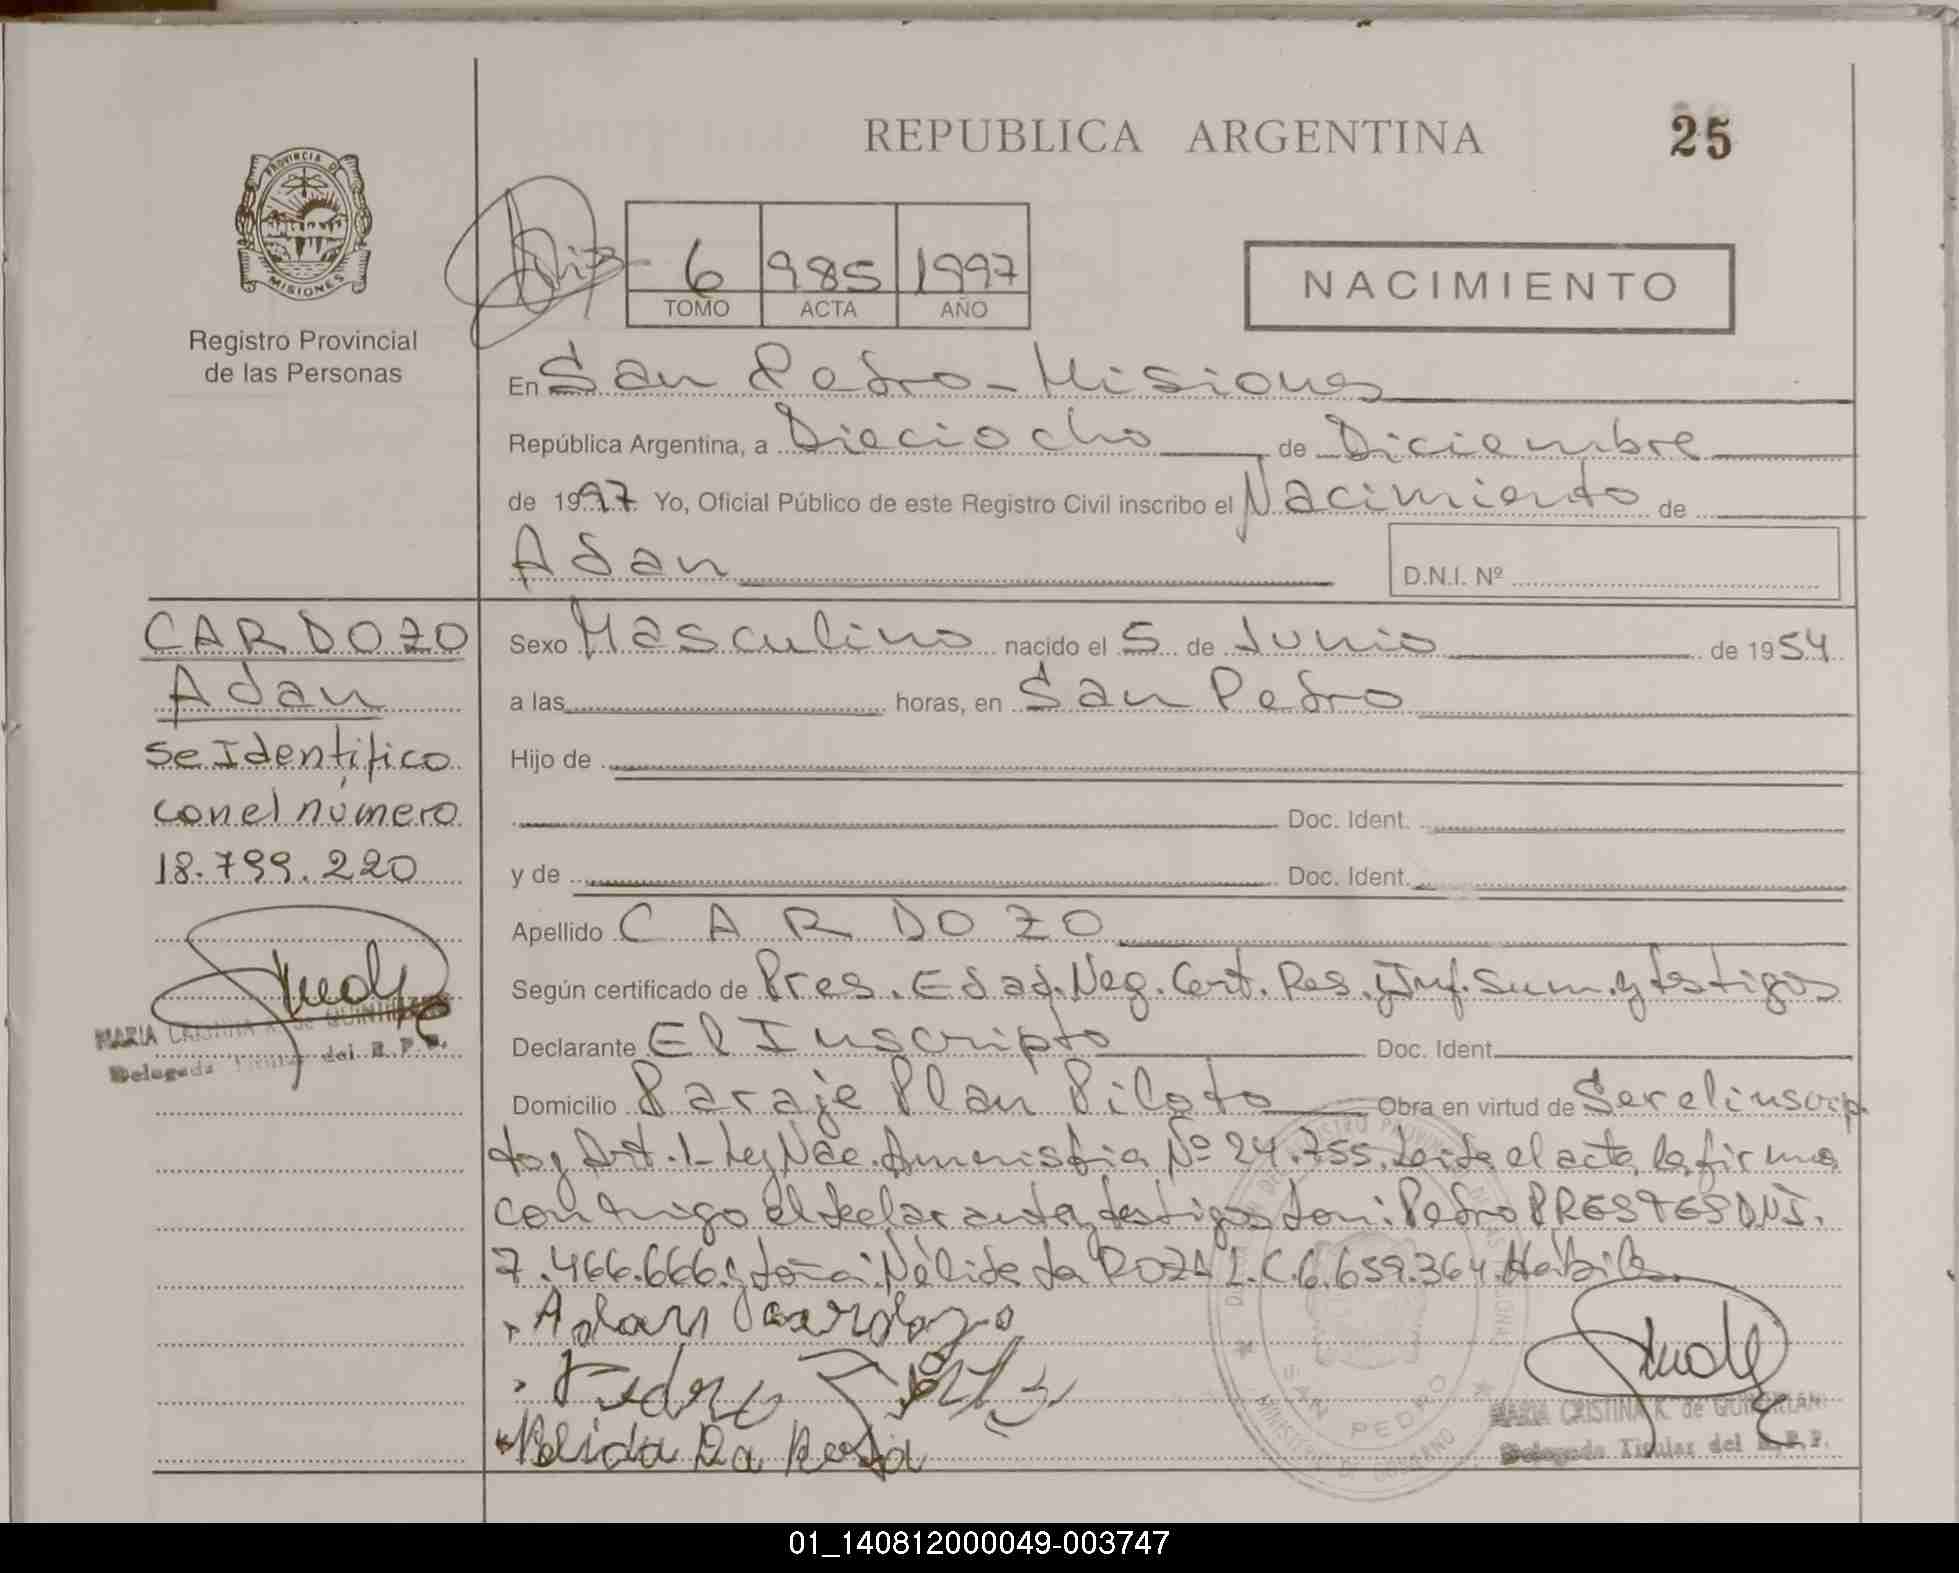 REPUBLICA ARGENTINA
25
PROVINCIA DE
MISIONES
Registro Provincial
de las Personas
6 985 1997
TOMO ACTA AÑO
NACIMIENTO
En San Pedro - Misiones
República Argentina, a Dieciocho de Diciembre
de 1997 Yo, Oficial Público de este Registro Civil inscribo el Nacimiento de
Adan
D.N.I. Nº
CARDOZO
Adan
se Identifico
con el número
18.799.220
MARIA CRISTINA K. de QUINTANA
Delegada Titular del R.P.P.
Sexo Masculino nacido el 5 de Junio de 1954
a las horas, en San Pedro
Hijo de
Doc. Ident.
y de Doc. Ident.
Apellido CARDOZO
Según certificado de Pres. Edad. Neg. Cert. Res. y Inf. Sum. y testigos
Declarante El Inscripto Doc. Ident.
Domicilio Paraje Plan Piloto Obra en virtud de Ser el inscrip
to y Art. 1- Ley Nac. Amnistia Nº 24.755. Leida el acta, la firma
conmigo el declarante y testigos don: Pedro PRESTES DNI.
7.466.666. y doña: Nélida da ROZA L.C. 6.659.364. Habiles
Adan Cardozo
Pedro
Nelida Da Rosa
SAN PEDRO
MINISTERIO DE GOBIERNO
MARIA CRISTINA K. de
Delegada Titular del R.P.P.
01_140812000049-003747